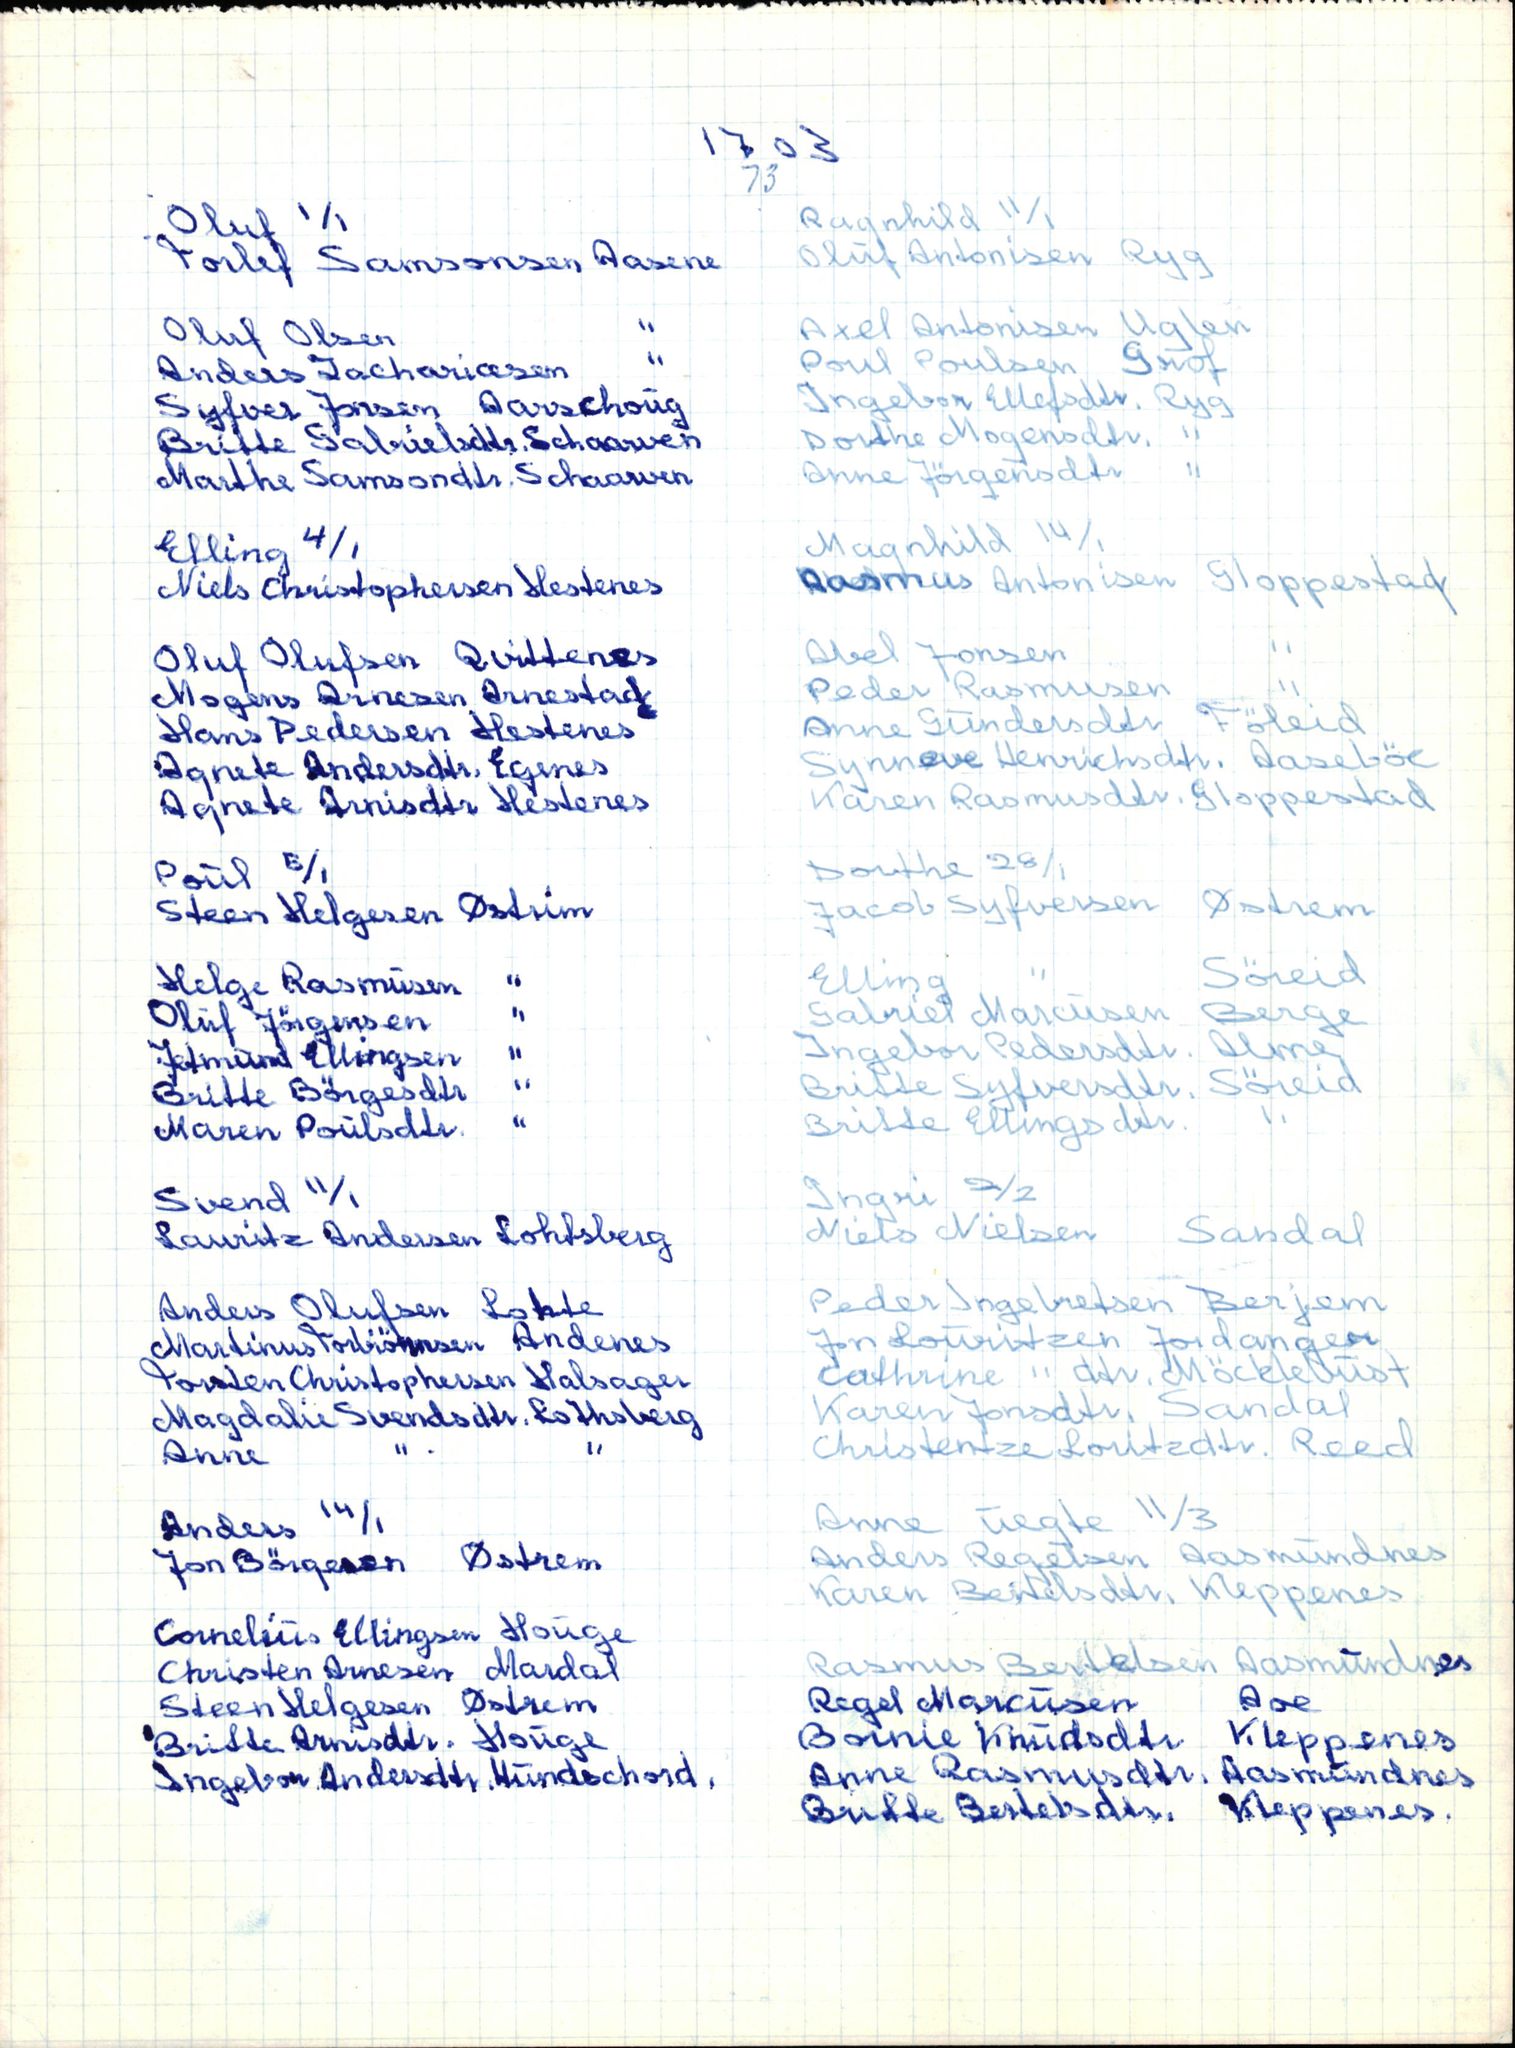 1703
73
Oluf 1/1
Torlef Samsonsen Aasene
Oluf Olsen "
Anders Zachariæsen "
Syfver Jonsen Aarschoŭg
Britte Gabrielsdtr. Schaarven
Marthe Samsondtr. Schaarven
Elling 4/1
Niels Christophersen Hestenes
Oluf Olufsen Qvittenes
Mogens Arnesen Arnestad
Hans Pedersen Hestenes
Agnete Andersdtr. Egenes
Agnete Arnisdtr Hestenes
Poŭl 5/1
Steen Helgesen Østrim
Helge Rasmŭsen "
Olŭf Jörgensen "
Jetmund Ellingsen "
Britte Börgesdtr "
Maren Poŭlsdtr. "
Svend 11/1
Lauritz Andersen Lohtsberg
Anders Olufsen Lohte
Martinus Torbiörnsen Andenes
Torsten Christophersen Halsager
Magdalie Svendsdtr. Lothsberg
Anne " "
Anders 14/1
Jon Börgesen Østrem
Corneliŭs Ellingsen Hoŭge
Christen Arnesen Mardal
Steen Helgesen Østrem
Britte Arnisdtr. Hoŭge
Ingebor Andersdtr. Hŭndschord.
Ragnhild 11/1
Olŭf Antonisen Ryg
Axel Antonisen Uglen
Poul Poulsen Grof
Ingebor Ellefsdtr. Ryg
Dorthe Mogensdtr. "
Anne Jörgensdtr "
Magnhild 14/1
Rasmus Antonisen Gloppestad
Abel Jonsen "
Peder Rasmusen "
Anne Gŭndersdtr. Föleid
Synneve Henrichsdtr. Aaseböe
Karen Rasmusdtr. Gloppestad
Dorthe 28/1
Jacob Syfversen Østrem
Elling " Söreid
Gabriel Marcŭsen Berge
Ingebor Pedersdtr. Alme
Britte Syfversdtr. Söreid
Britte Ellingsdtr. "
Ingri 2/2
Niels Nielsen Sandal
Peder Ingebretsen Berjem
Jon Loŭritzen Jordanger
Cathrine " dtr. Möcklebŭst
Karen Jonsdtr. Sandal
Christentze Loritzdtr. Reed
Anne ŭegte 11/3
Anders Regelsen Aasmŭndnes
Karen Bertelsdtr. Kleppenes
Rasmus Bertelsen Aasmŭndnes
Regel Marcŭsen Aoe
Boinie Knŭdsdtr Kleppenes
Anne Rasmusdtr. Aasmŭndnes
Britte Bertelsdtr. Kleppenes.